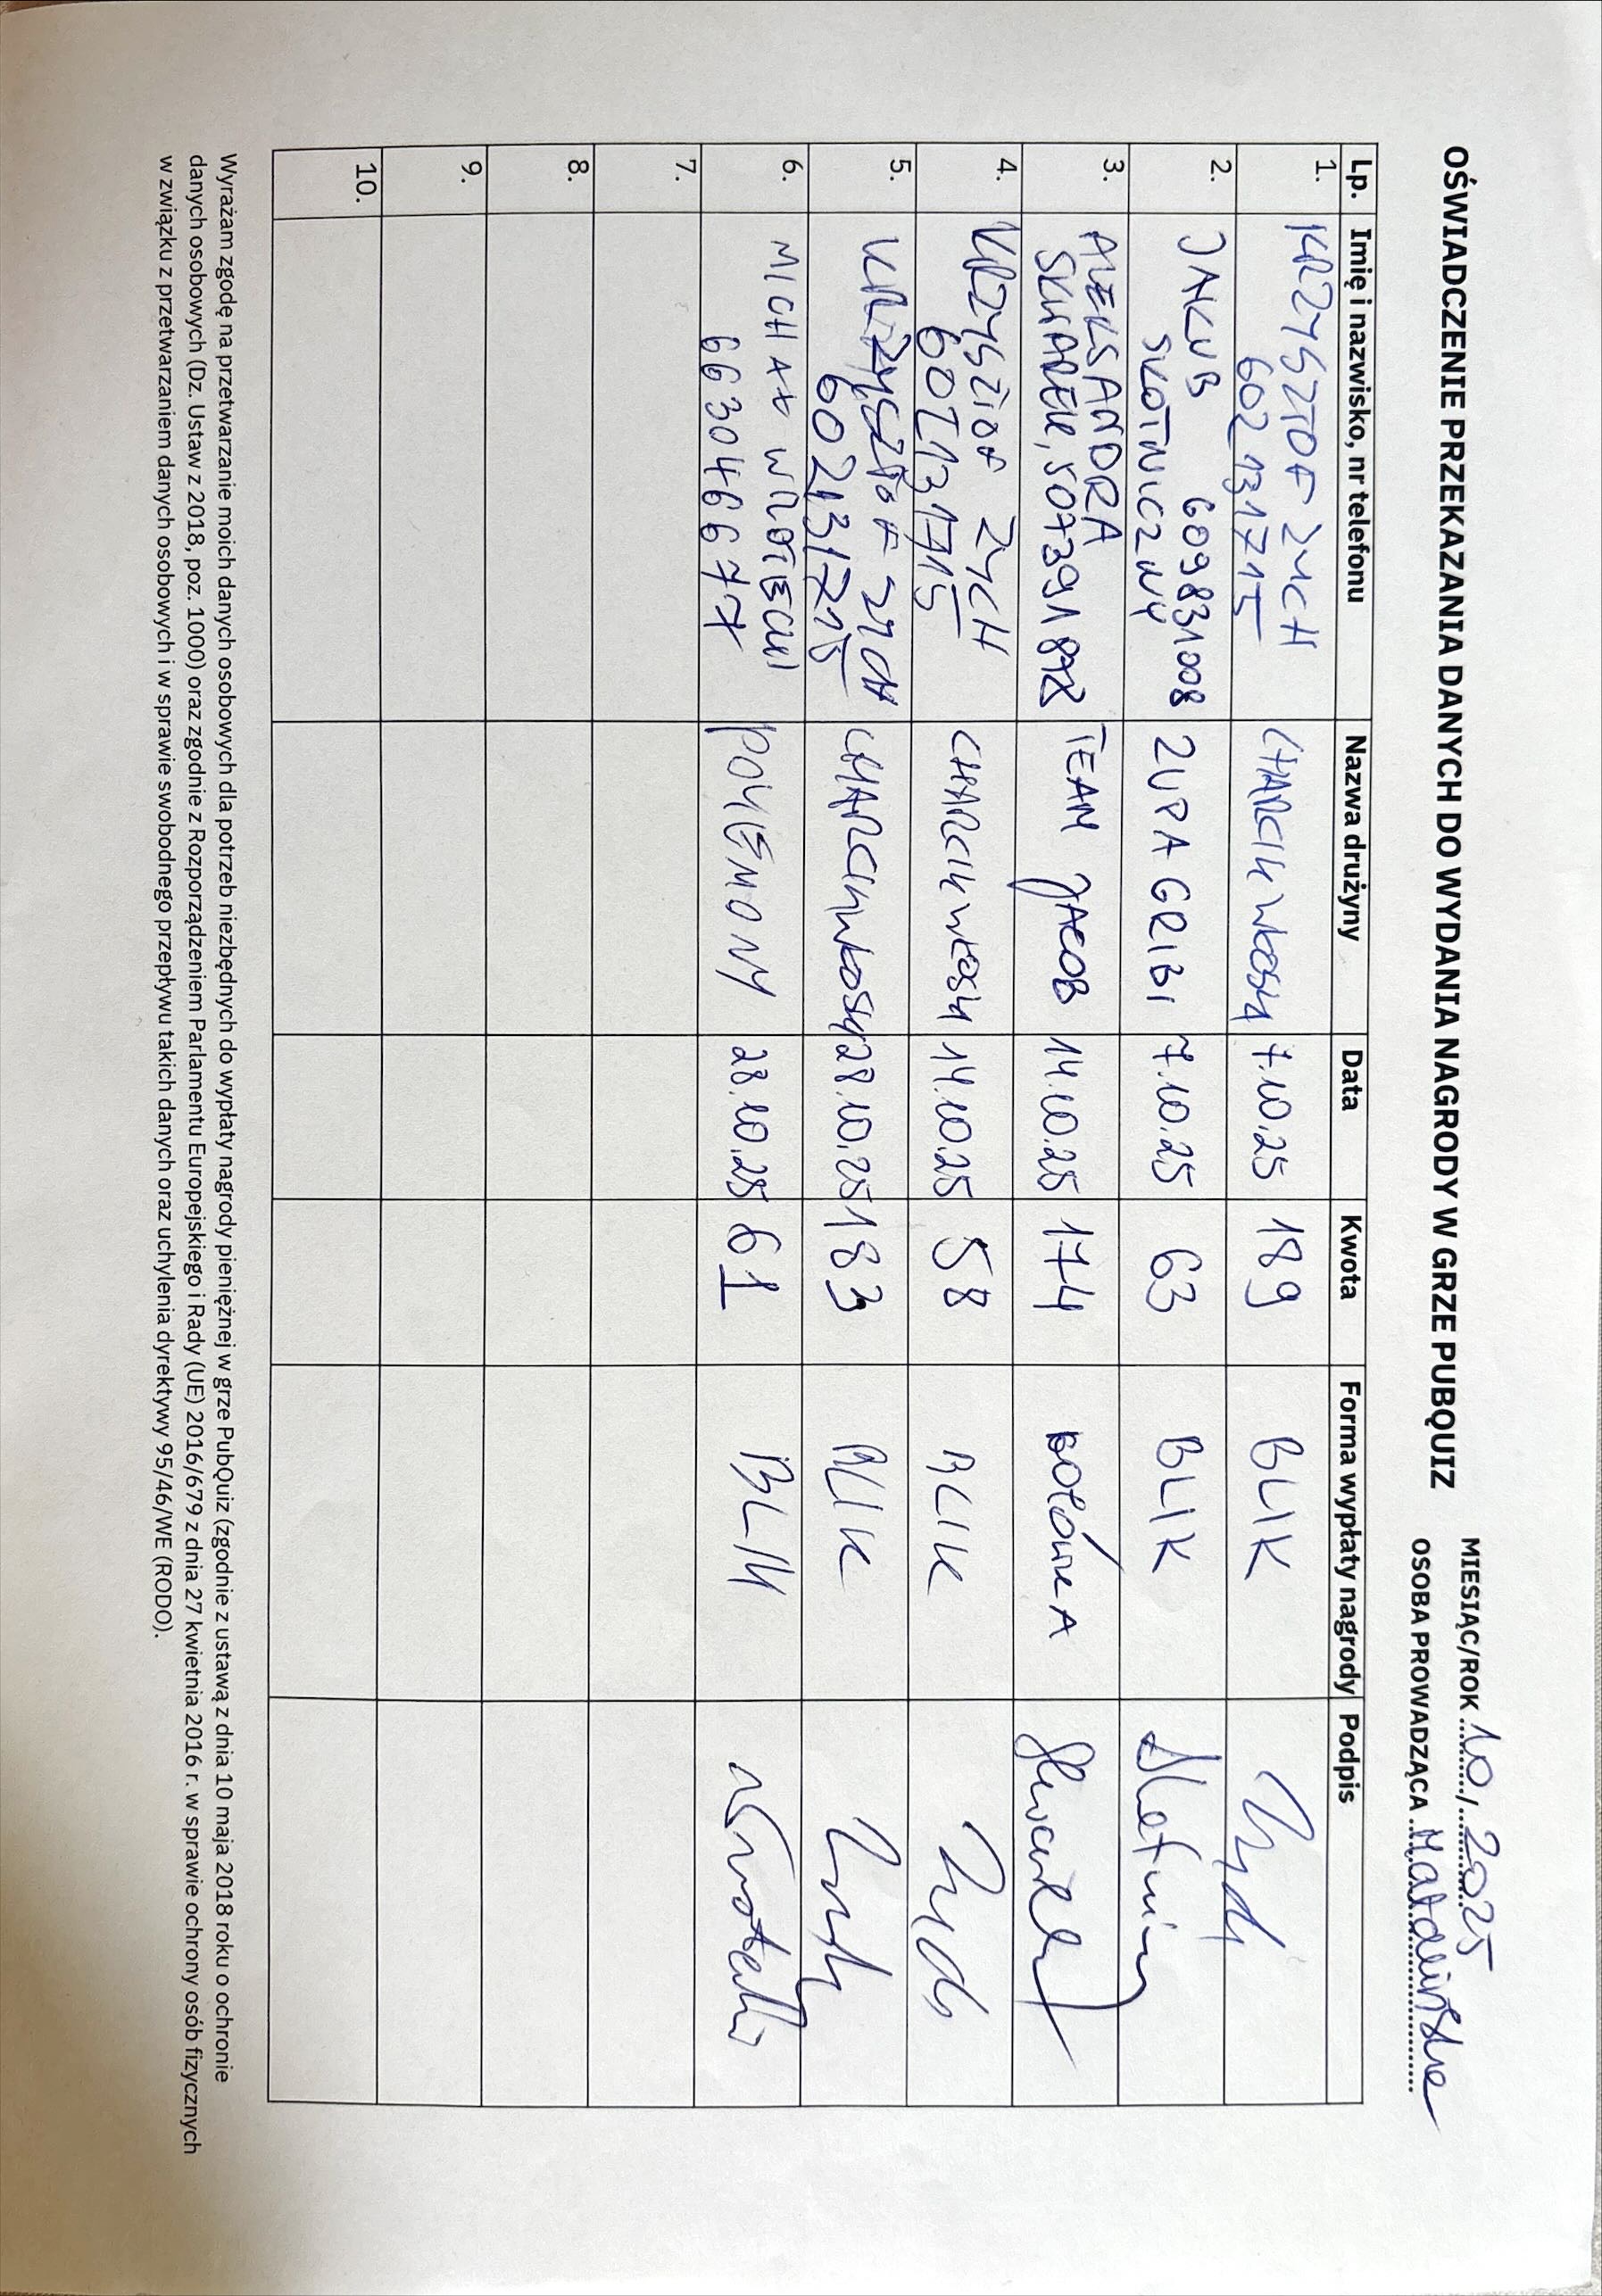 OŚWIADCZENIE PRZEKAZANIA DANYCH DO WYDANIA NAGRODY W GRZE PUBQUIZ
MIESIĄC/ROK 10/2025
OSOBA PROWADZĄCA
Lp. Imię i nazwisko, nr telefonu Nazwa drużyny Data Kwota Forma wypłaty nagrody Podpis
1. KRZYSZTOF ZYCH CHARCIK WŁOSKI 7.10.25 189 BLIK
602131715
2. JAKUB 609831008 ZUPA GRIBI 7.10.25 63 BLIK
SKOTNICZNY
3. ALEKSANDRA TEAM JACOB 14.10.25 174 GOTÓWKA
SKWAREK, 507391878
4. KRZYSZTOF ZYCH CHARCIK WŁOSKI 14.10.25 58 BLIK
602131715
5. KRZYSZTOF ZYCH CHARCIK WŁOSKI 28.10.25 183 BLIK
602131715
6. MICHAŁ WNOTECKI POKEMONY 28.10.25 61 BLIK
663046677
7.
8.
9.
10.
Wyrażam zgodę na przetwarzanie moich danych osobowych dla potrzeb niezbędnych do wypłaty nagrody pieniężnej w grze PubQuiz (zgodnie z ustawą z dnia 10 maja 2018 roku o ochronie
danych osobowych (Dz. Ustaw z 2018, poz. 1000) oraz zgodnie z Rozporządzeniem Parlamentu Europejskiego i Rady (UE) 2016/679 z dnia 27 kwietnia 2016 r. w sprawie ochrony osób fizycznych
w związku z przetwarzaniem danych osobowych i w sprawie swobodnego przepływu takich danych oraz uchylenia dyrektywy 95/46/WE (RODO).